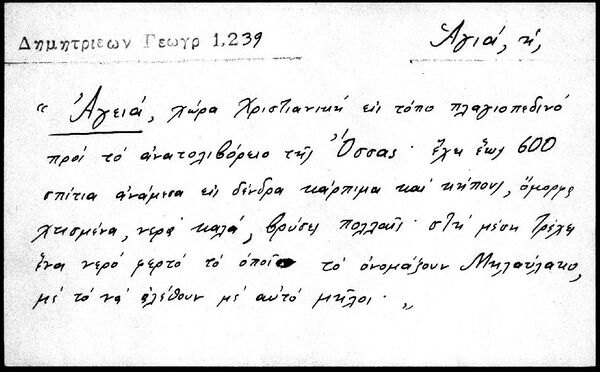 Δημητριεων Γεωγρ 1,239
Ἁγιά, ἡ,
" Ἁγειά, χώρα Χριστιανική εἰς τόπο πλαγιοπεδινό
πρὸς τό ἀνατολιβόρειο τῆς Ὄσσας· ἔχει ἕως 600
σπίτια ἀνάμεσα εἰς δένδρα κάρπιμα καί κήπους, ὄμορφα
χτισμένα, νερά καλά, βρύσες πολλαίς· στή μέση τρέχει
ἕνα νερό φερτό τό ὁποῖο τό ὀνομάζουν Μηλαύλακο,
μέ τό νά ἀλέθουν μέ αὐτό μῆλοι. "